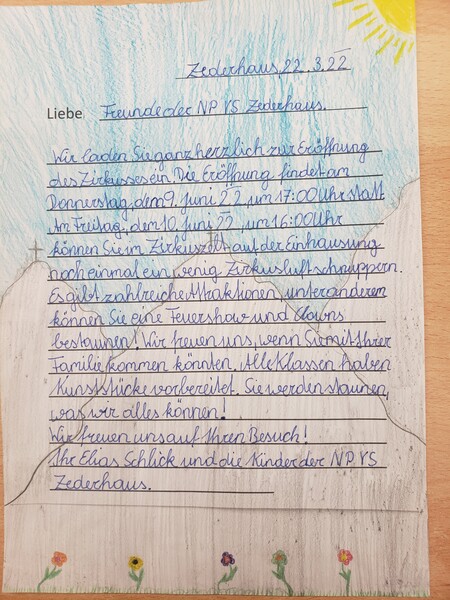 Zederhaus, 22.3.22
Liebe Freunde der NP VS Zederhaus.
Wir laden Sie ganz herzlich zur Eröffnung
des Zirkusses ein. Die Eröffnung findet am
Donnerstag, dem 9. Juni 22, um 17:00 Uhr statt.
Am Freitag, dem 10. Juni 22, um 16:00 Uhr
können Sie im Zirkuszelt auf der Einhausung
noch einmal ein wenig Zirkusluft schnuppern.
Es gibt zahlreiche Attraktionen, unter anderem
können Sie eine Feuershow und Clowns
bestaunen! Wir freuen uns, wenn Sie mit Ihrer
Familie kommen könnten. Alle Klassen haben
Kunststücke vorbereitet. Sie werden staunen,
was wir alles können!
Wir freuen uns auf Ihren Besuch!
Ihr Elias Schlick und die Kinder der NP VS
Zederhaus.